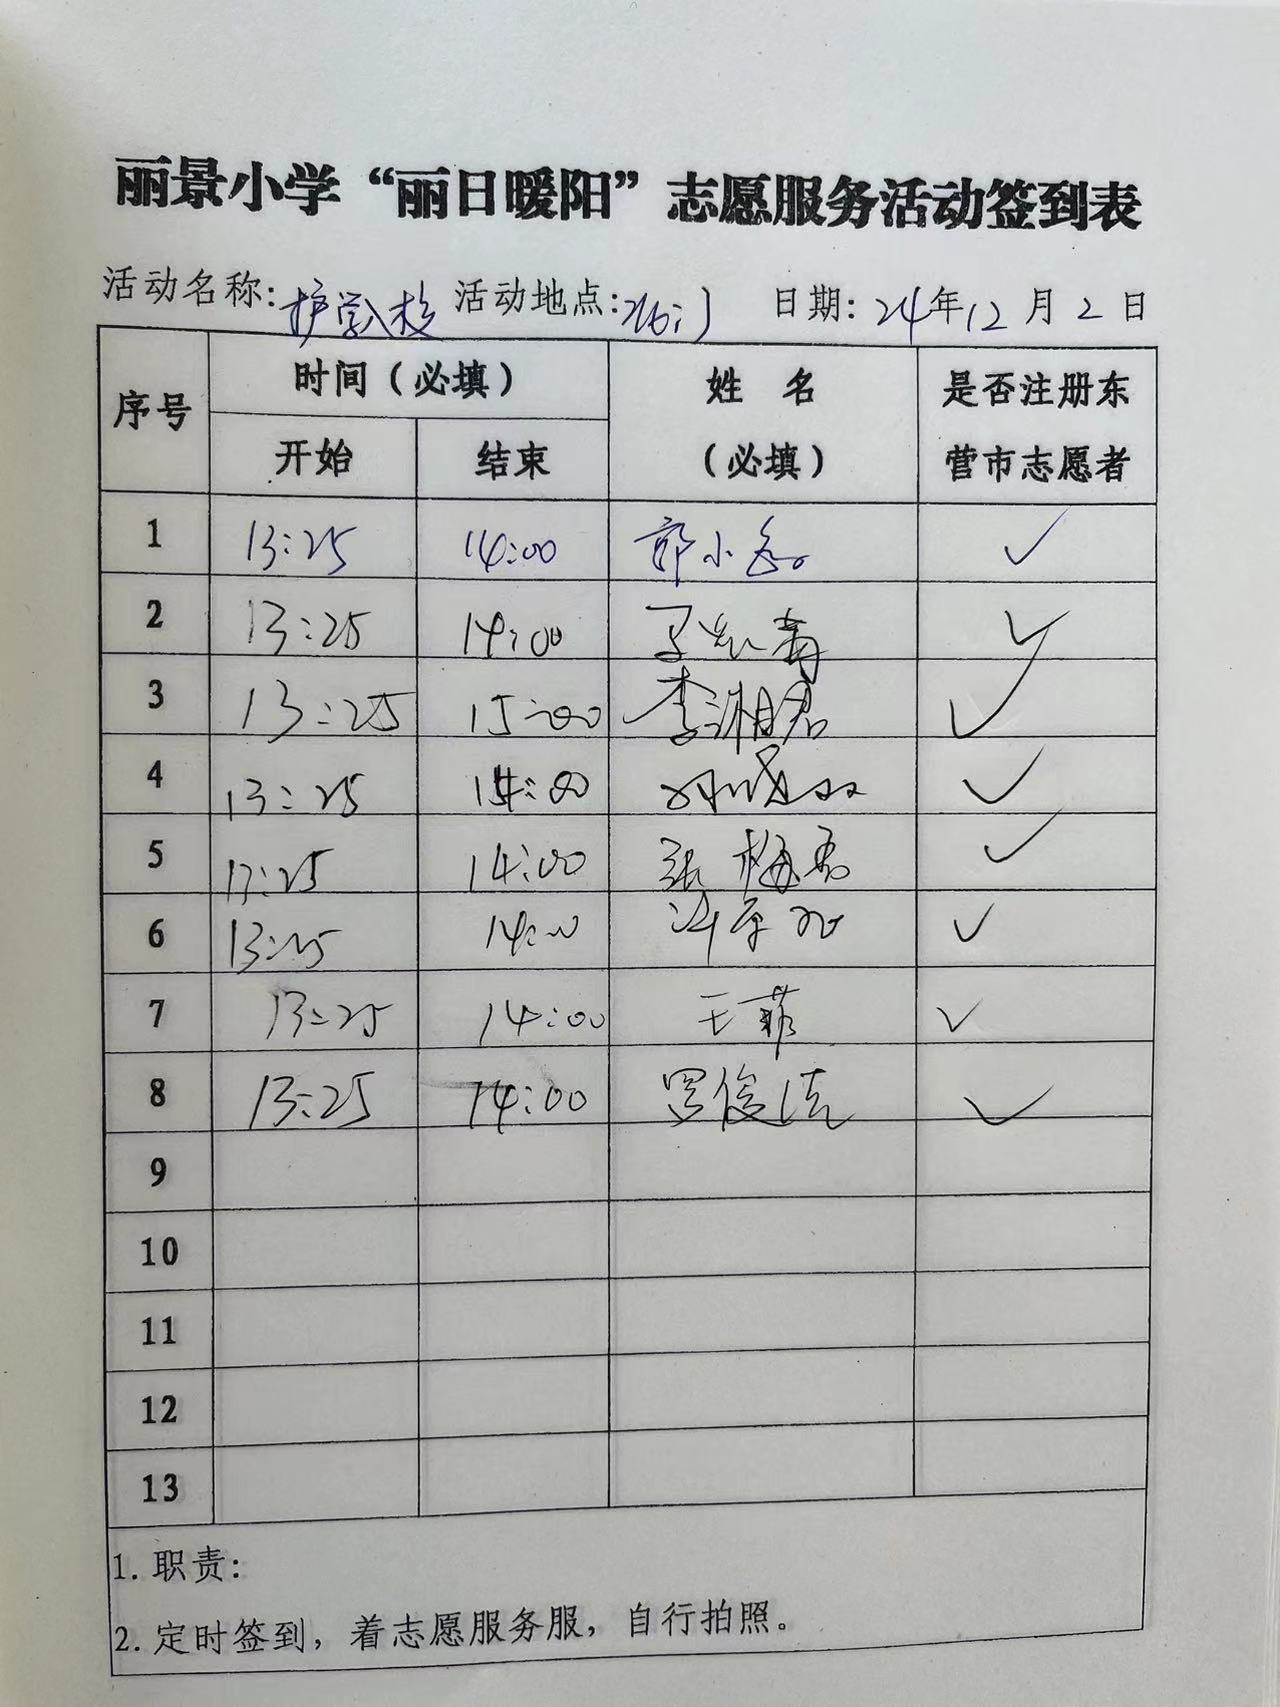 丽景小学“丽日暖阳”志愿服务活动签到表
活动名称:护学入校 活动地点:北门 日期:24年12月2日
序号 时间(必填) 姓 名 (必填) 是否注册东营市志愿者
开始 结束
1 13:25 14:00 郭小 ✓
2 13:25 14:00 ✓
3 13:25 15:00 李湘君 ✓
4 13:25 14:00 ✓
5 13:25 14:00 张梅香 ✓
6 13:25 14:00 ✓
7 13:25 14:00 王菲 ✓
8 13:25 14:00 罗俊 ✓
9
10
11
12
13
1.职责:
2.定时签到，着志愿服务服，自行拍照。